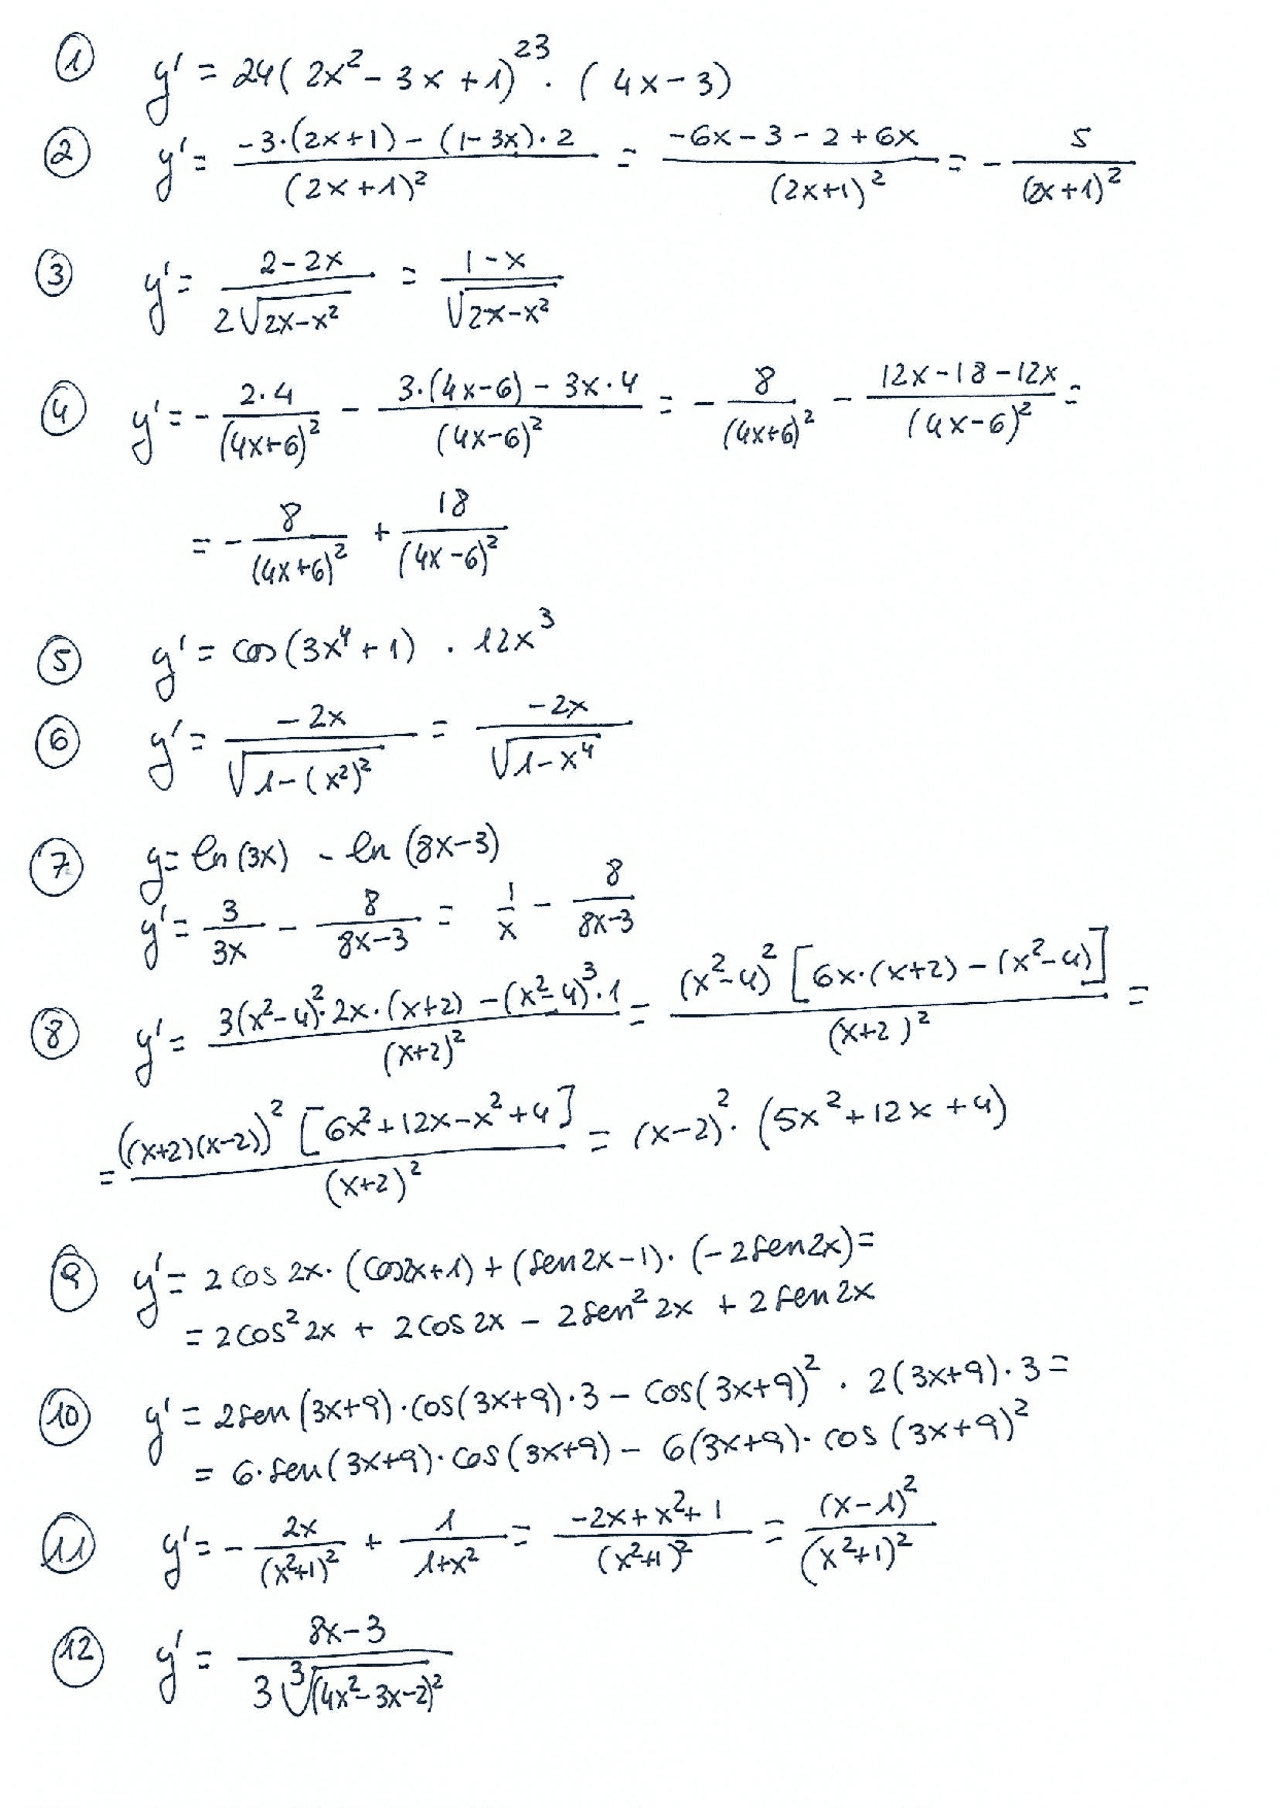 ① y' = 24(2x² - 3x + 1)²³ · (4x - 3)
② y' = (-3·(2x+1) - (1-3x)·2)/(2x+1)² = (-6x - 3 - 2 + 6x)/(2x+1)² = - 5/(2x+1)²
③ y' = (2-2x)/(2√(2x-x²)) = (1-x)/√(2x-x²)
④ y' = - (2·4)/(4x+6)² - (3·(4x-6) - 3x·4)/(4x-6)² = - 8/(4x+6)² - (12x-18-12x)/(4x-6)² =
= - 8/(4x+6)² + 18/(4x-6)²
⑤ y' = cos(3x⁴+1) · 12x³
⑥ y' = -2x/√(1-(x²)²) = -2x/√(1-x⁴)
⑦ y = ln(3x) - ln(8x-3)
y' = 3/3x - 8/(8x-3) = 1/x - 8/(8x-3)
⑧ y' = (3(x²-4)²·2x·(x+2) - (x²-4)³·1)/(x+2)² = ((x²-4)² [6x·(x+2) - (x²-4)])/(x+2)² =
= (((x+2)(x-2))² [6x²+12x-x²+4])/(x+2)² = (x-2)² · (5x²+12x+4)
⑨ y' = 2cos2x·(cos2x+1) + (sen2x-1)·(-2sen2x) =
= 2cos²2x + 2cos2x - 2sen²2x + 2sen2x
⑩ y' = 2sen(3x+9)·cos(3x+9)·3 - cos(3x+9)² · 2(3x+9)·3 =
= 6·sen(3x+9)·cos(3x+9) - 6(3x+9)·cos(3x+9)²
⑪ y' = - 2x/(x²+1)² + 1/(1+x²) = (-2x+x²+1)/(x²+1)² = (x-1)²/(x²+1)²
⑫ y' = (8x-3)/(3∛(4x²-3x-2)²)